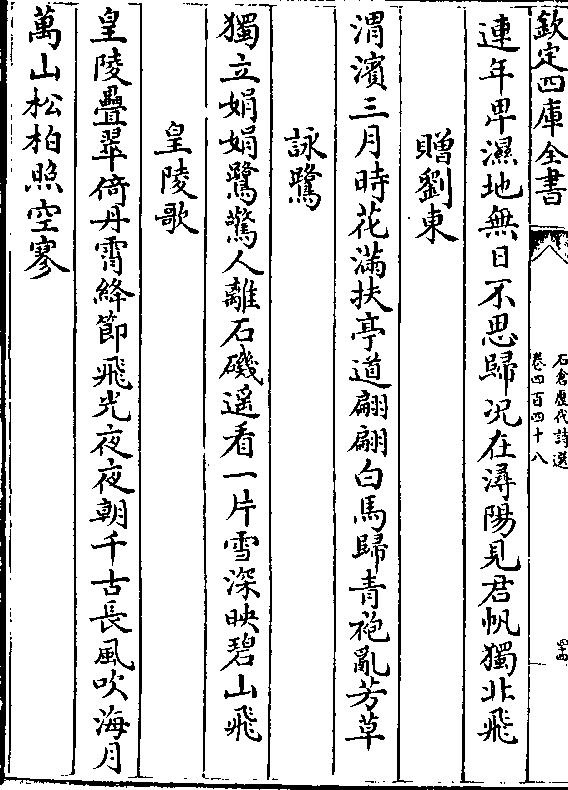 欽定四庫全書
石倉歷代詩選
卷四百四十八
連年卑濕地無日不思歸況在潯陽見君帆獨北飛
贈劉東
渭濱三月時花滿扶亭道翩翩白馬歸青袍亂芳草
詠鷺
獨立娟娟鷺驚人離石磯遥看一片雪深映碧山飛
皇陵歌
皇陵疊翠倚丹霄絳節飛光夜夜朝千古長風吹海月
萬山松柏照空寥